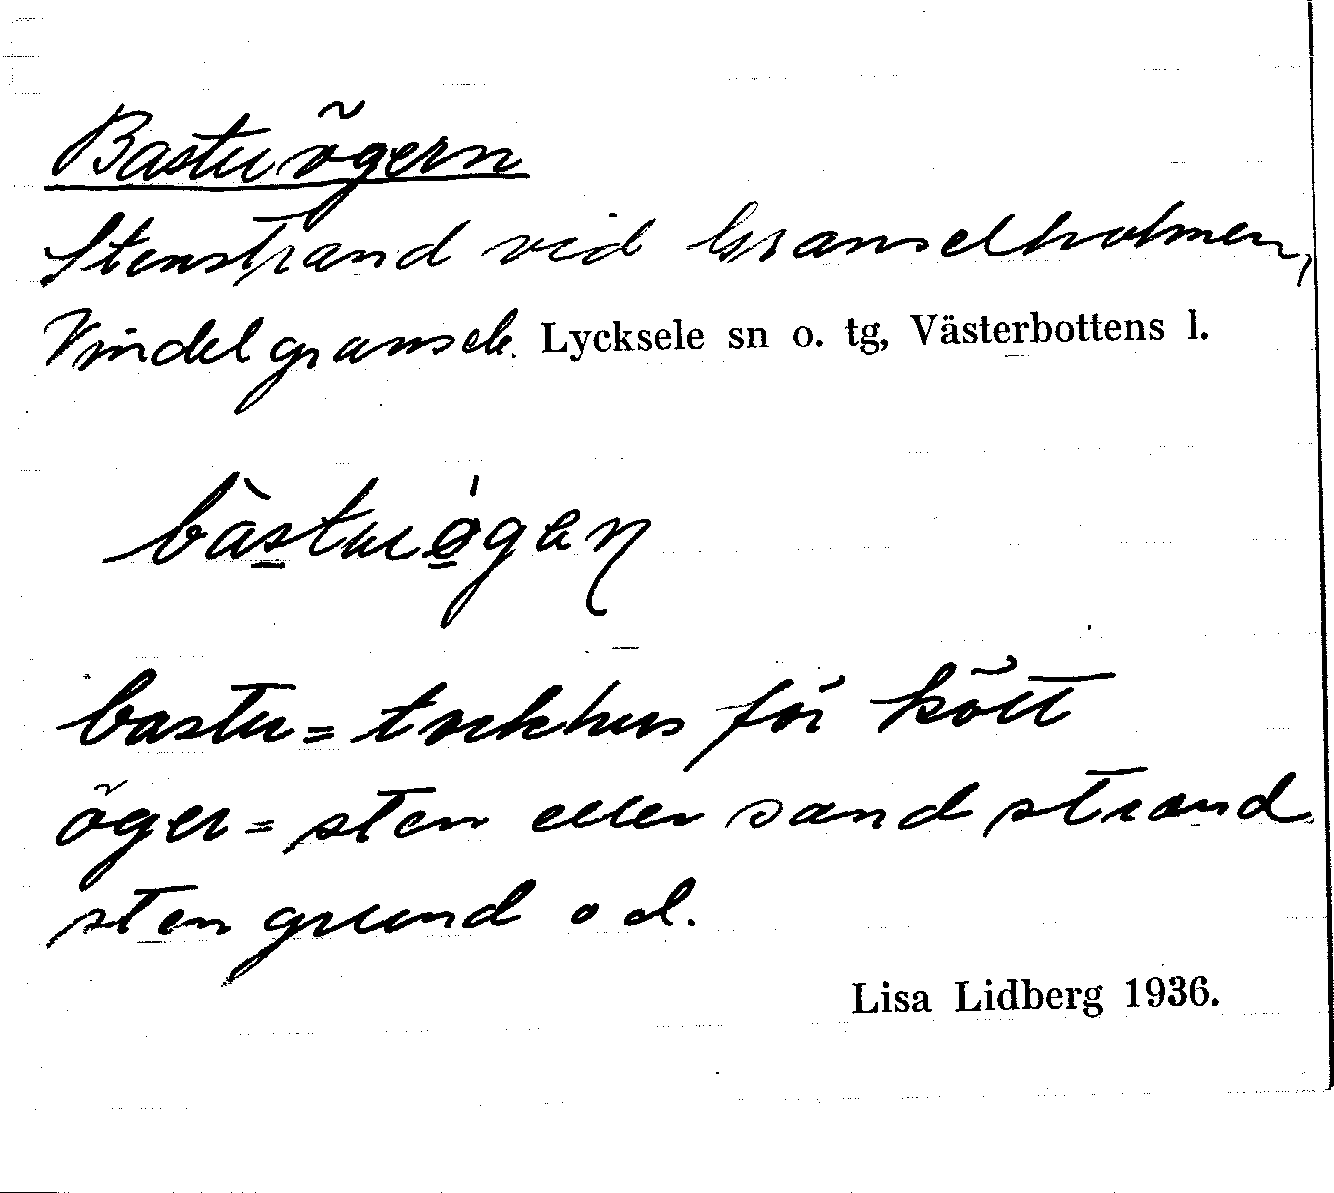 Bastuögern
Stenstrand vid Granselholmen,
Vindelgransele. Lycksele sn o. tg, Västerbottens l.
bastu = torkhus för kött
öger = sten eller sandstrand
stengrund o d.
Lisa Lidberg 1936.